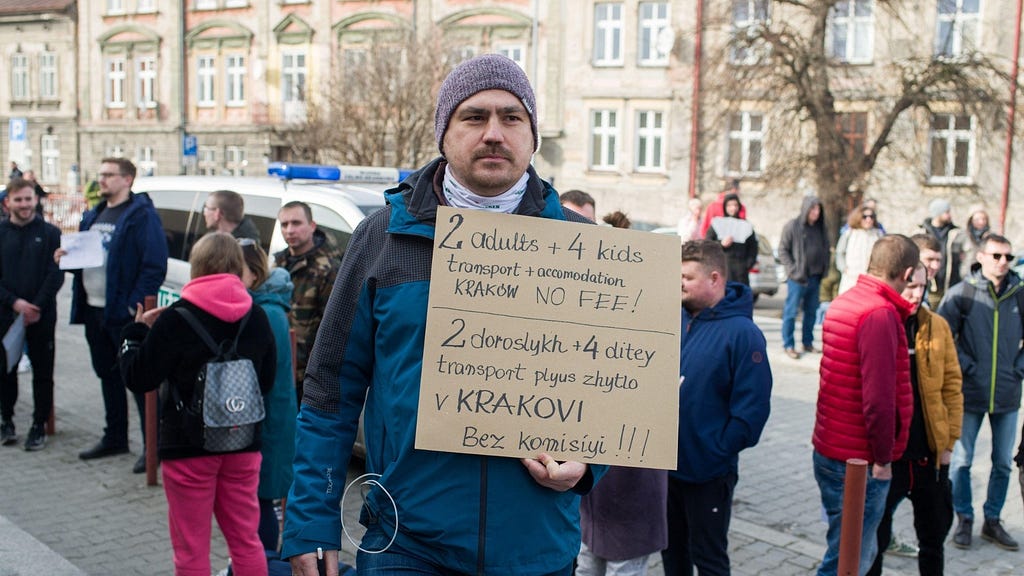 2 adults + 4 kids
transport + accomodation
KRAKÓW NO FEE!
2 doroslykh + 4 ditey
transport plyus zhytlo
v KRAKOVI
Bez komisiyi !!!